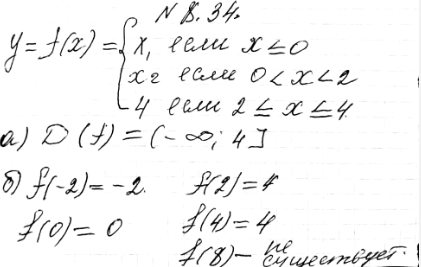 № 8.34.
y = f(x) = { x, если x ≤ 0
x² если 0 < x < 2
4 если 2 ≤ x ≤ 4
а) D (f) = (-∞; 4]
б) f(-2) = -2. f(2) = 4
f(0) = 0 f(4) = 4
f(8) - не существует.